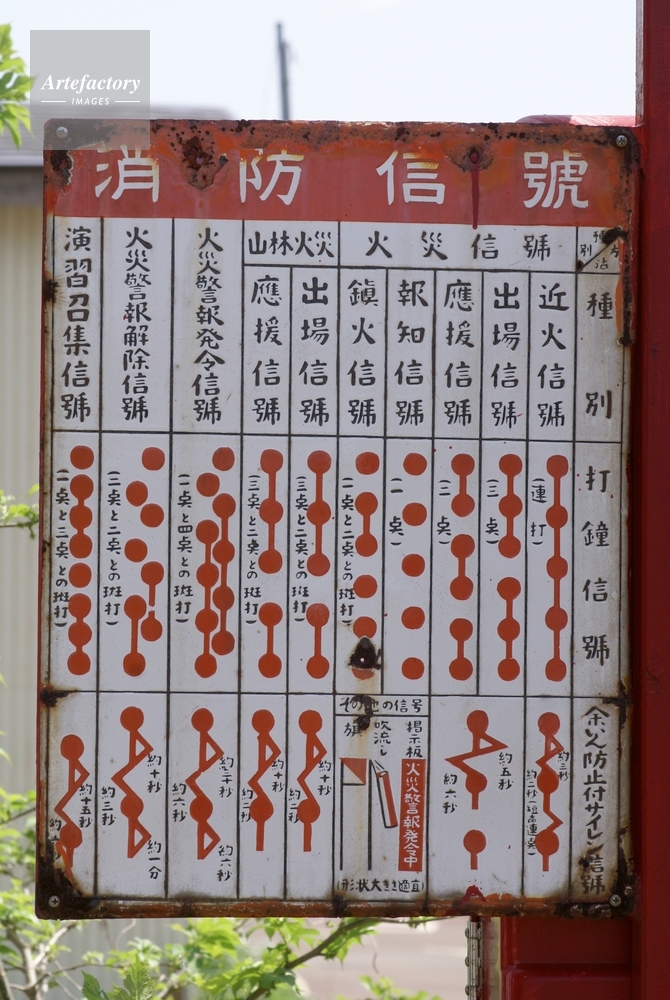 Artefactory
IMAGES
消防信號
方法
種別
打鐘信號
余いん防止付サイレン信號
火災信號
近火信號
(連打)
約三秒
約二秒(短声連点)
出場信號
(三点)
應援信號
(二点)
約五秒
約六秒
報知信號
(一点)
鎭火信號
(一点と二点との斑打)
その他の信号
掲示板
火災警報発令中
吹流し
旗
(形状大きさ適宜)
山林火災
出場信號
(三点と二点との斑打)
約十秒
約二秒
應援信號
(三点と二点との斑打)
約十秒
約二秒
火災警報発令信號
(一点と四点との斑打)
約三十秒
約六秒
約六秒
火災警報解除信號
(一点と二点との斑打)
約十秒
約三秒
約一分
演習召集信號
(一点と三点との斑打)
約十五秒